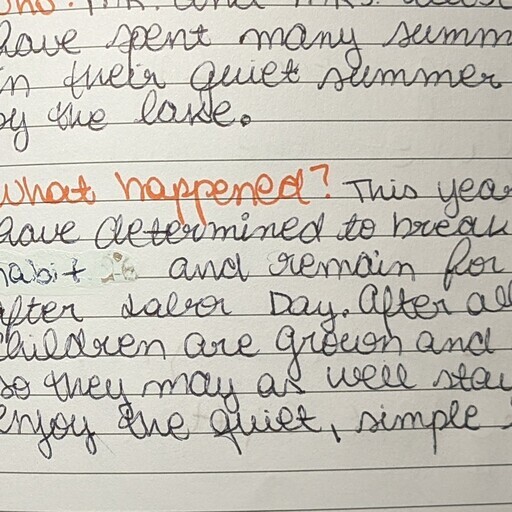 Who? Mr. and Mrs.
have spent many summ
in their quiet summer
by the lake.
What happened? This yea
have determined to break
habit and remain for
after Labor Day. After al
children are grown and
so they may as well stay
enjoy the quiet, simple